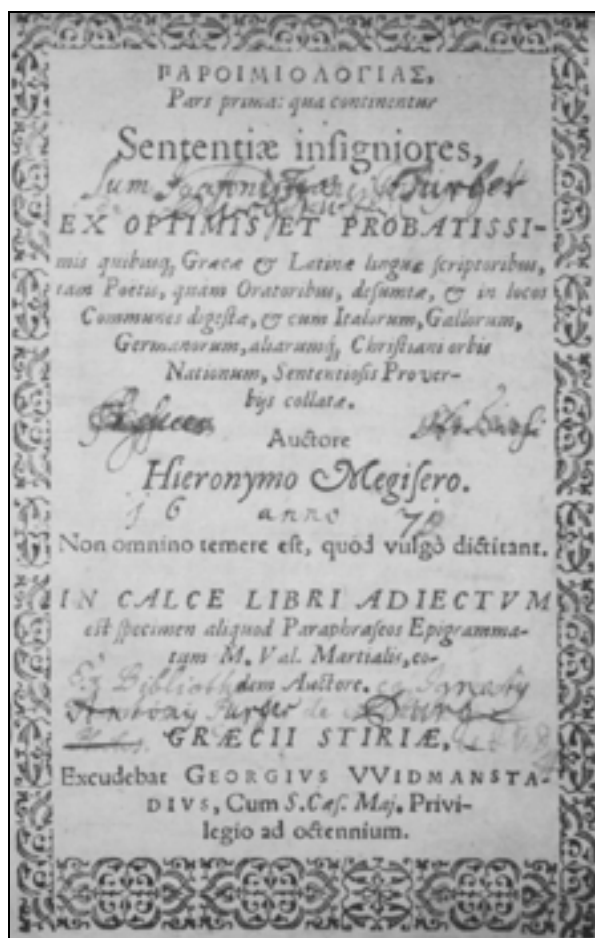 ΠΑΡΟΙΜΙΟΛΟΓΙΑΣ,
Pars prima: qua continentur
Sententiæ insigniores,
EX OPTIMIS ET PROBATISSI-
mis quibusq; Græcæ & Latinæ linguæ scriptoribus,
tam Poëtis, quàm Oratoribus, desumtæ, & in locos
Communes digestæ, & cum Italorum, Gallorum,
Germanorum, aliarumq; Christiani orbis
Nationum, Sententiosis Prover-
bijs collatæ.
Auctore
Hieronymo Megisero.
16 anno 70
Non omnino temere est, quòd vulgò dictitant.
IN CALCE LIBRI ADIECTVM
est specimen aliquod Paraphraseos Epigramma-
tum M. Val. Martialis, eo-
dem Auctore.
GRÆCII STIRIÆ,
Excudebat GEORGIVS VVIDMANSTA-
DIVS, Cum S. Cæs. Maj. Privi-
legio ad octennium.